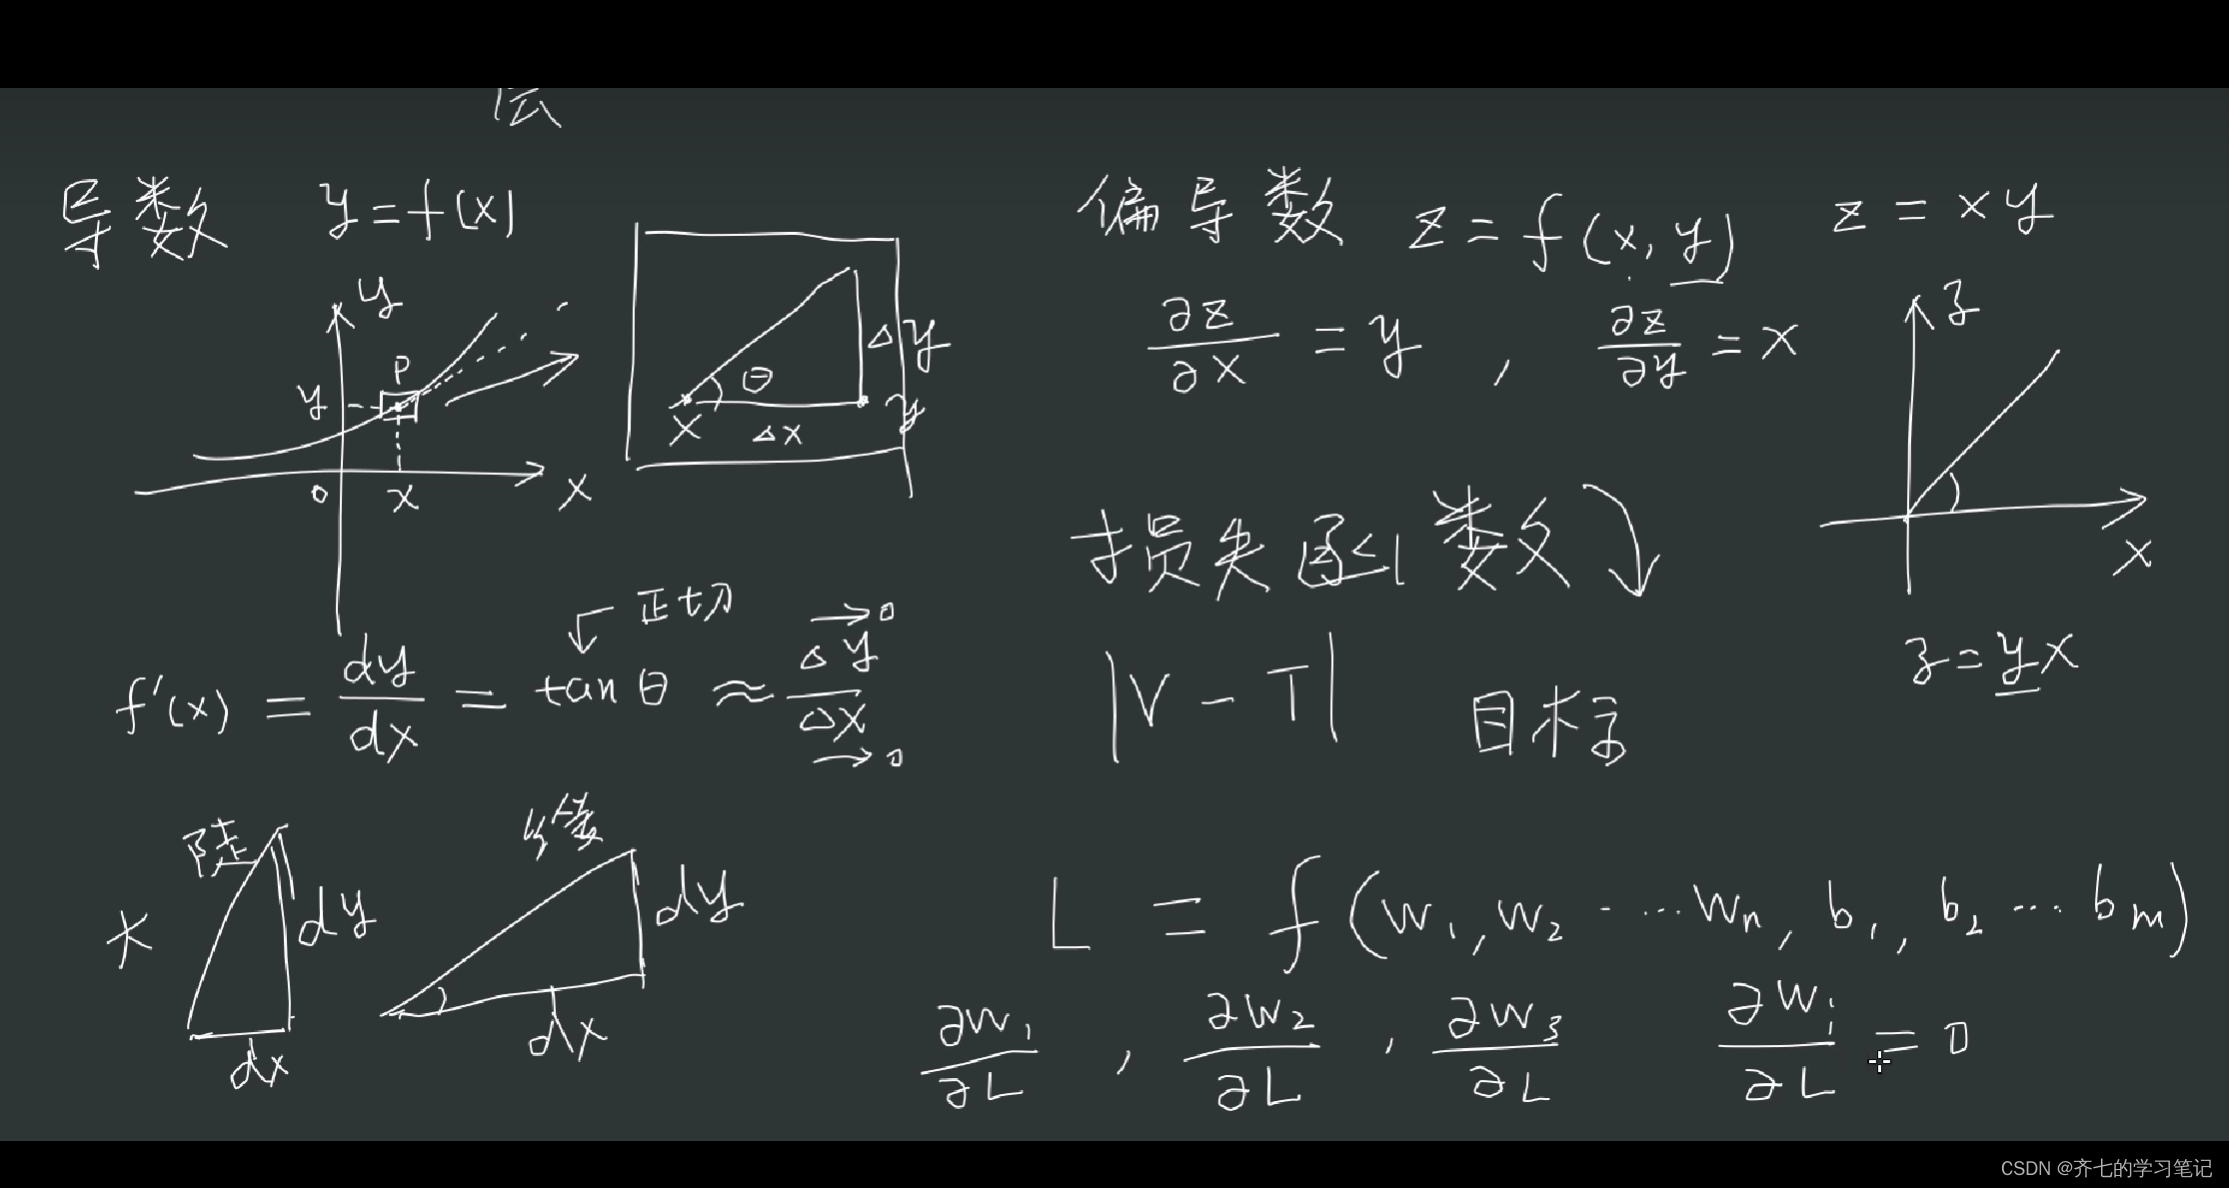 层
导数 y=f(x)
y
P
y
o x x
θ Δy
x Δx y
正切
f'(x) = dy/dx = tan θ ≈ Δy/Δx
→0
→0
陡 dy
dx
缓 dy
dx
偏导数 z = f(x, y) z = xy
∂z/∂x = y , ∂z/∂y = x
z
x
z = yx
损失函数
|V - T| 目标
L = f(w₁, w₂ ... wₙ, b₁, b₂ ... bₘ)
∂w₁/∂L , ∂w₂/∂L , ∂w₃/∂L ∂wᵢ/∂L = 0
CSDN @齐七的学习笔记